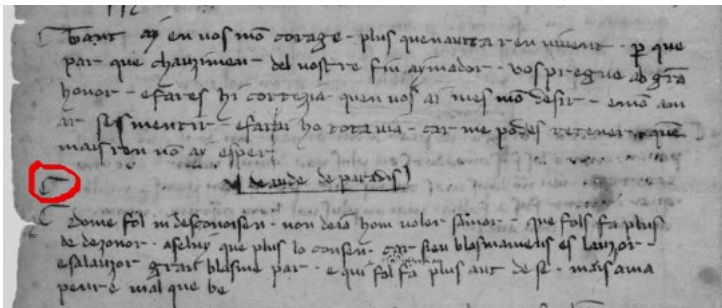 Tant ai en vos mō corage · plus quenautra ren vivent · p̱ que
par que chauzimen · del vostre fin aymador · vos pregue ab grā
honor · efares hi cortezia · quen vos ai mes mō desir · emō am
ar ses mentir · efarai ho tota via · car me podes retener · quē
mais ren nō ai esper
de aude de paradis
dome fol ni desconoisen · non deia hom voler samor · que fols fa plus
de dezonor · aseluy que plus lo consen · car sieu blasmamens es lauzor ·
esalauzor gran blasme par · e qui fol fa plus aut de se · mais ama
penre mal que be